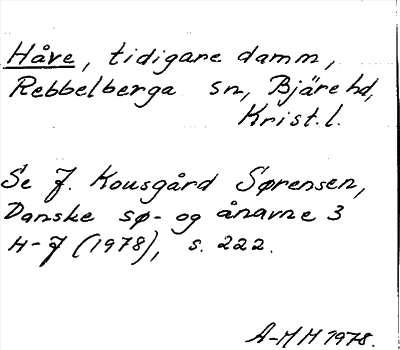 Håve, tidigare damm,
Rebbelberga sn, Bjäre hd,
Krist. l.
Se J. Kousgård Sørensen,
Danske sø- og ånavne 3
H-J (1978), s. 222.
A-MH 1978.